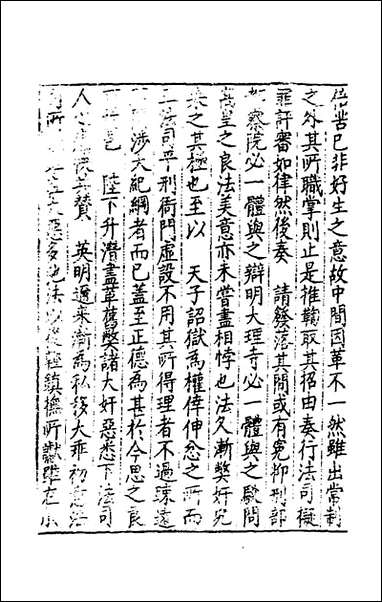 苦已非好生之意故中間因革不一然雖出常制
之外其所職掌則止是推鞫取其招由奏行法司擬
罪評審如律然後奏 請發落其間或有冤抑刑部
察院必一體與之辯明大理寺必一體與之駁問
皇之良法美意亦未嘗盡相悖也法久漸獘奸宄
乘之其極也至以 天子詔獄為權倖伸忿之所而
三法司平刑衙門虛設不用其所得理者不過踈遠
涉大紀綱者而已蓋至正德為甚於今思之良
陛下升潛盡革舊獘諸大奸惡悉下法司
人心 賛 英明邇来漸為私移大乖初意
惡多 法 鎮撫所獄